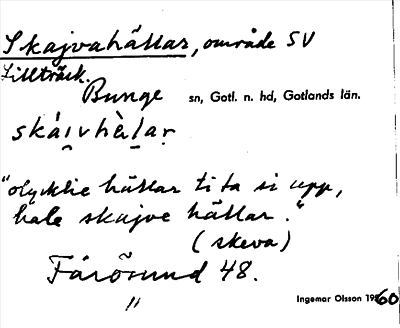 Skajvahällar, område SV
Lillträsk.
Bunge sn, Gotl. n. hd, Gotlands län.
skáıvhὲlar
"olycklie hällar ti ta si upp,
hale skajve hällar."
(skeva)
Fårösund 48.
"
Ingemar Olsson 1960